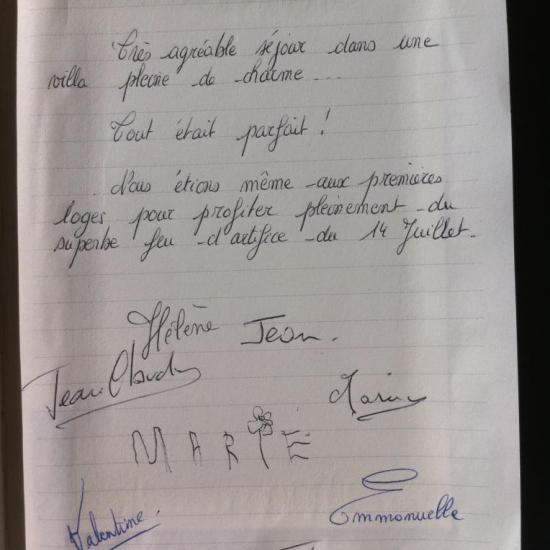 Très agréable séjour dans une
villa pleine de charme...
Tout était parfait !
Nous étions même aux premières
loges pour profiter pleinement du
superbe feu d'artifice du 14 Juillet.
Hélène Jean.
Jean Claude
MARIE
Valentine.
Emmanuelle